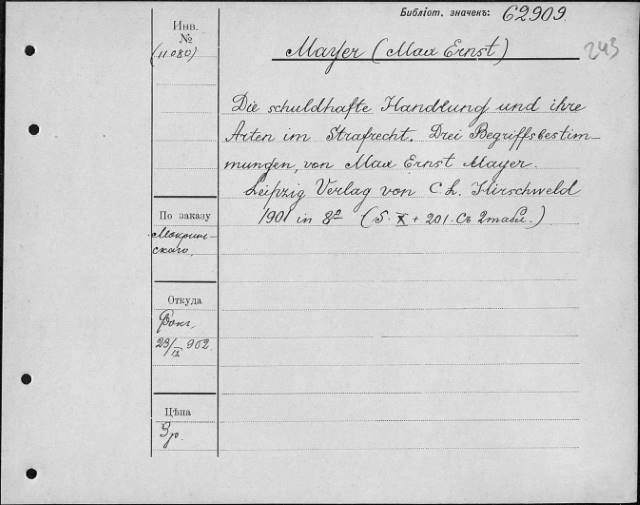 Библіот. значекъ: 62909
Инв.
№
(11.080)
Mayer (Max Ernst)
243
Die schuldhafte Handlung und ihre
Arten im Strafrecht. Drei Begriffsbestim-
mungen, von Max Ernst Mayer.
Leipzig Verlag von C. L. Hirschweld
1901 in 8º (S. X + 201. Съ 2 табл.)
По заказу
Мокрин-
скаго.
Откуда
Фокъ,
23/IX 902
Цѣна
р.